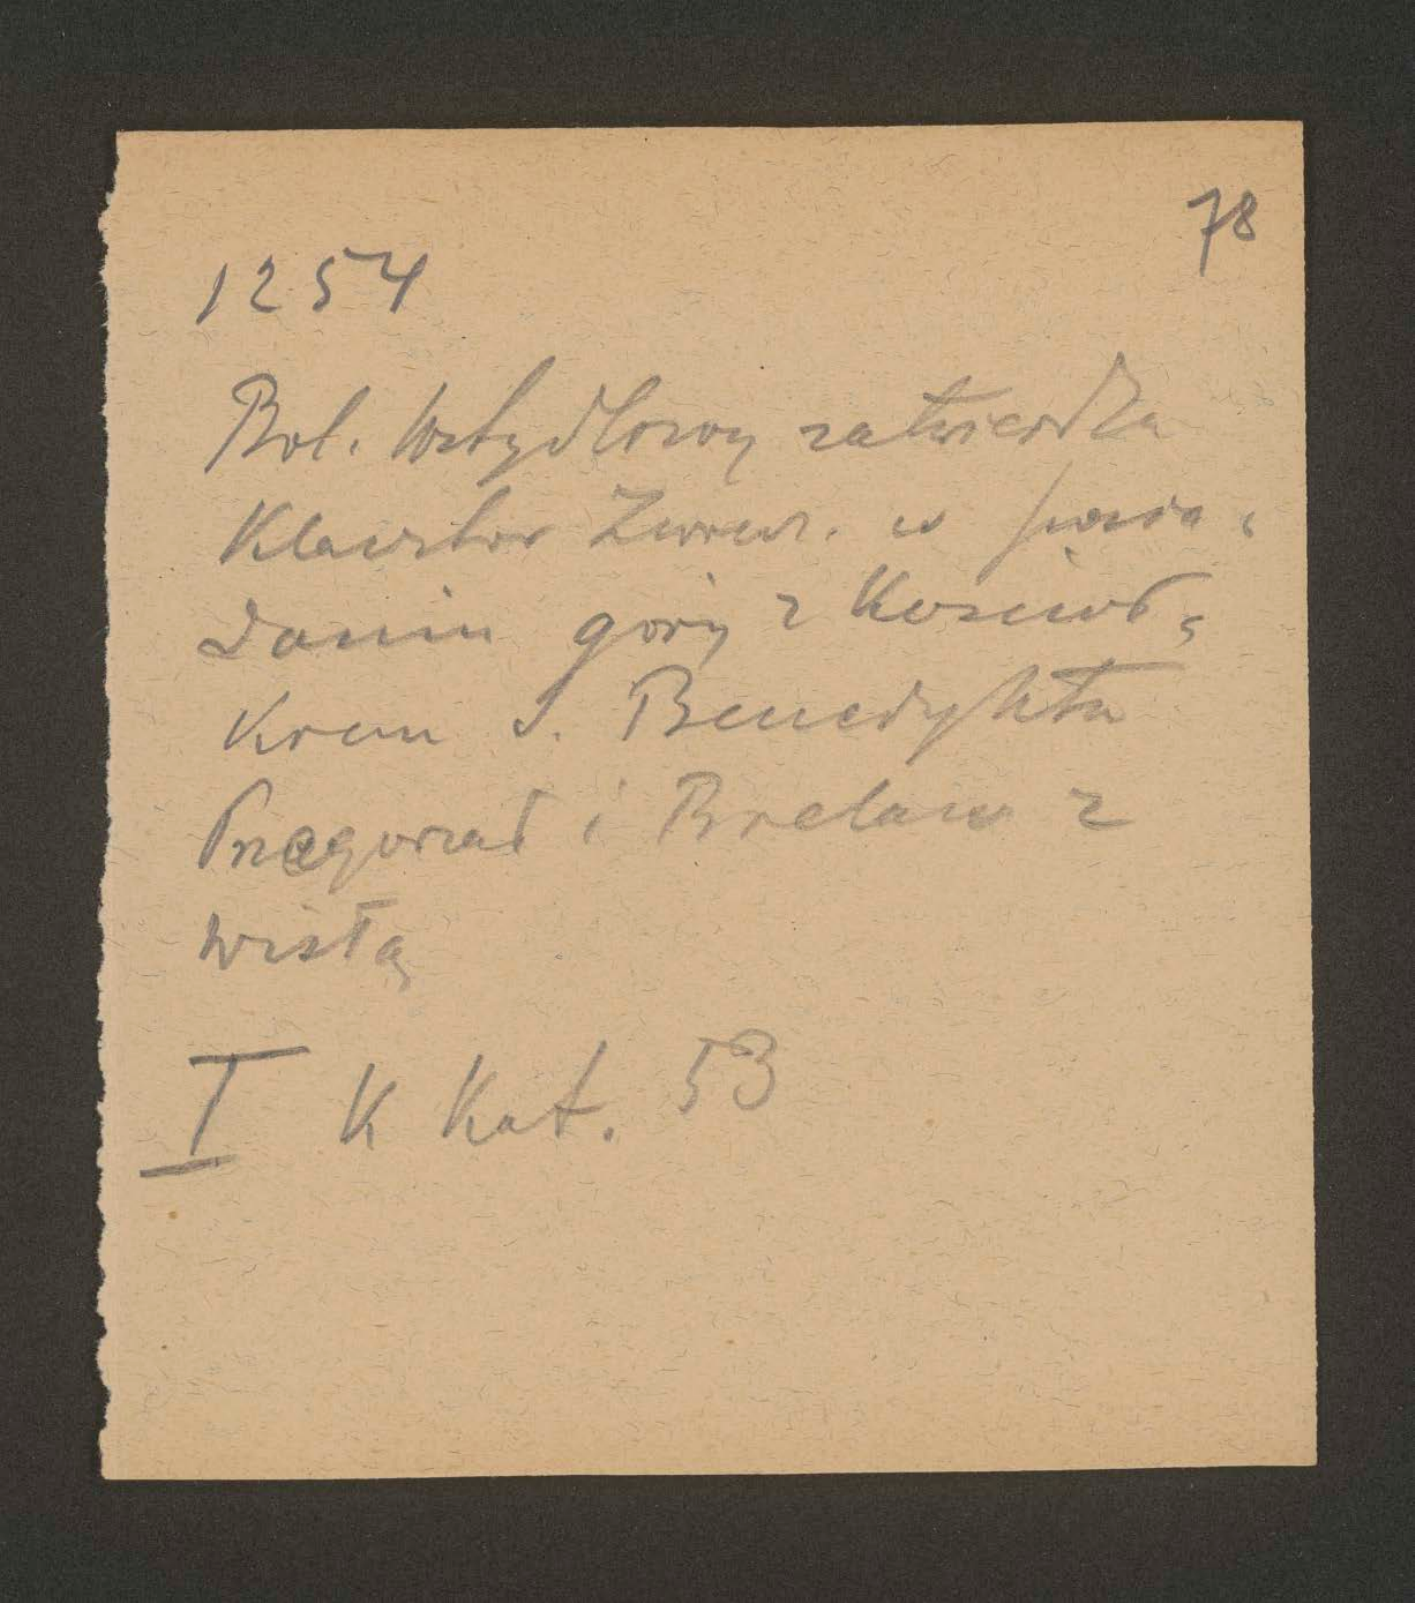 78
1254
Bol. Wstydliwy zatwierdza
Klasztor Zwierz. w posia-
daniu gory z Kościoł.
Kram S. Benedykta
Przegorzał i Brelaw z
wisłą
I K Kat. 53